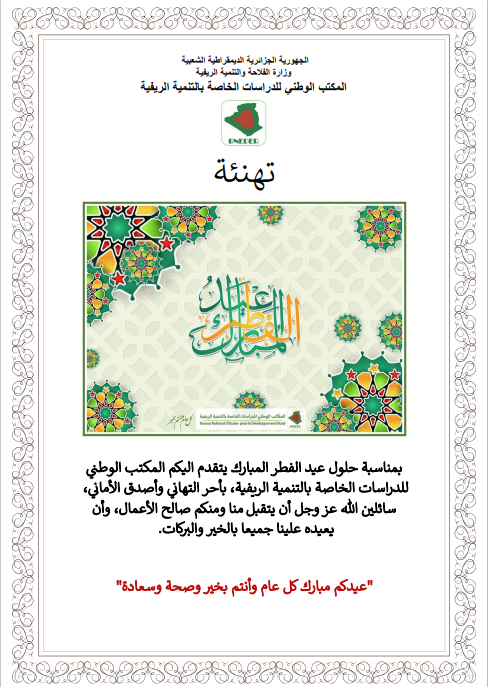 الجمهورية الجزائرية الديمقراطية الشعبية
وزارة الفلاحة والتنمية الريفية
المكتب الوطني للدراسات الخاصة بالتنمية الريفية
BNEDER
تهنئة
عيد الفطر المبارك
كل عام وأنتم بخير
المكتب الوطني للدراسات الخاصة بالتنمية الريفية
Bureau National d'Etudes pour le Développement Rural
بمناسبة حلول عيد الفطر المبارك يتقدم اليكم المكتب الوطني
للدراسات الخاصة بالتنمية الريفية، بأحر التهاني وأصدق الأماني،
سائلين الله عز وجل أن يتقبل منا ومنكم صالح الأعمال، وأن
يعيده علينا جميعا بالخير والبركات.
"عيدكم مبارك كل عام وأنتم بخير وصحة وسعادة"